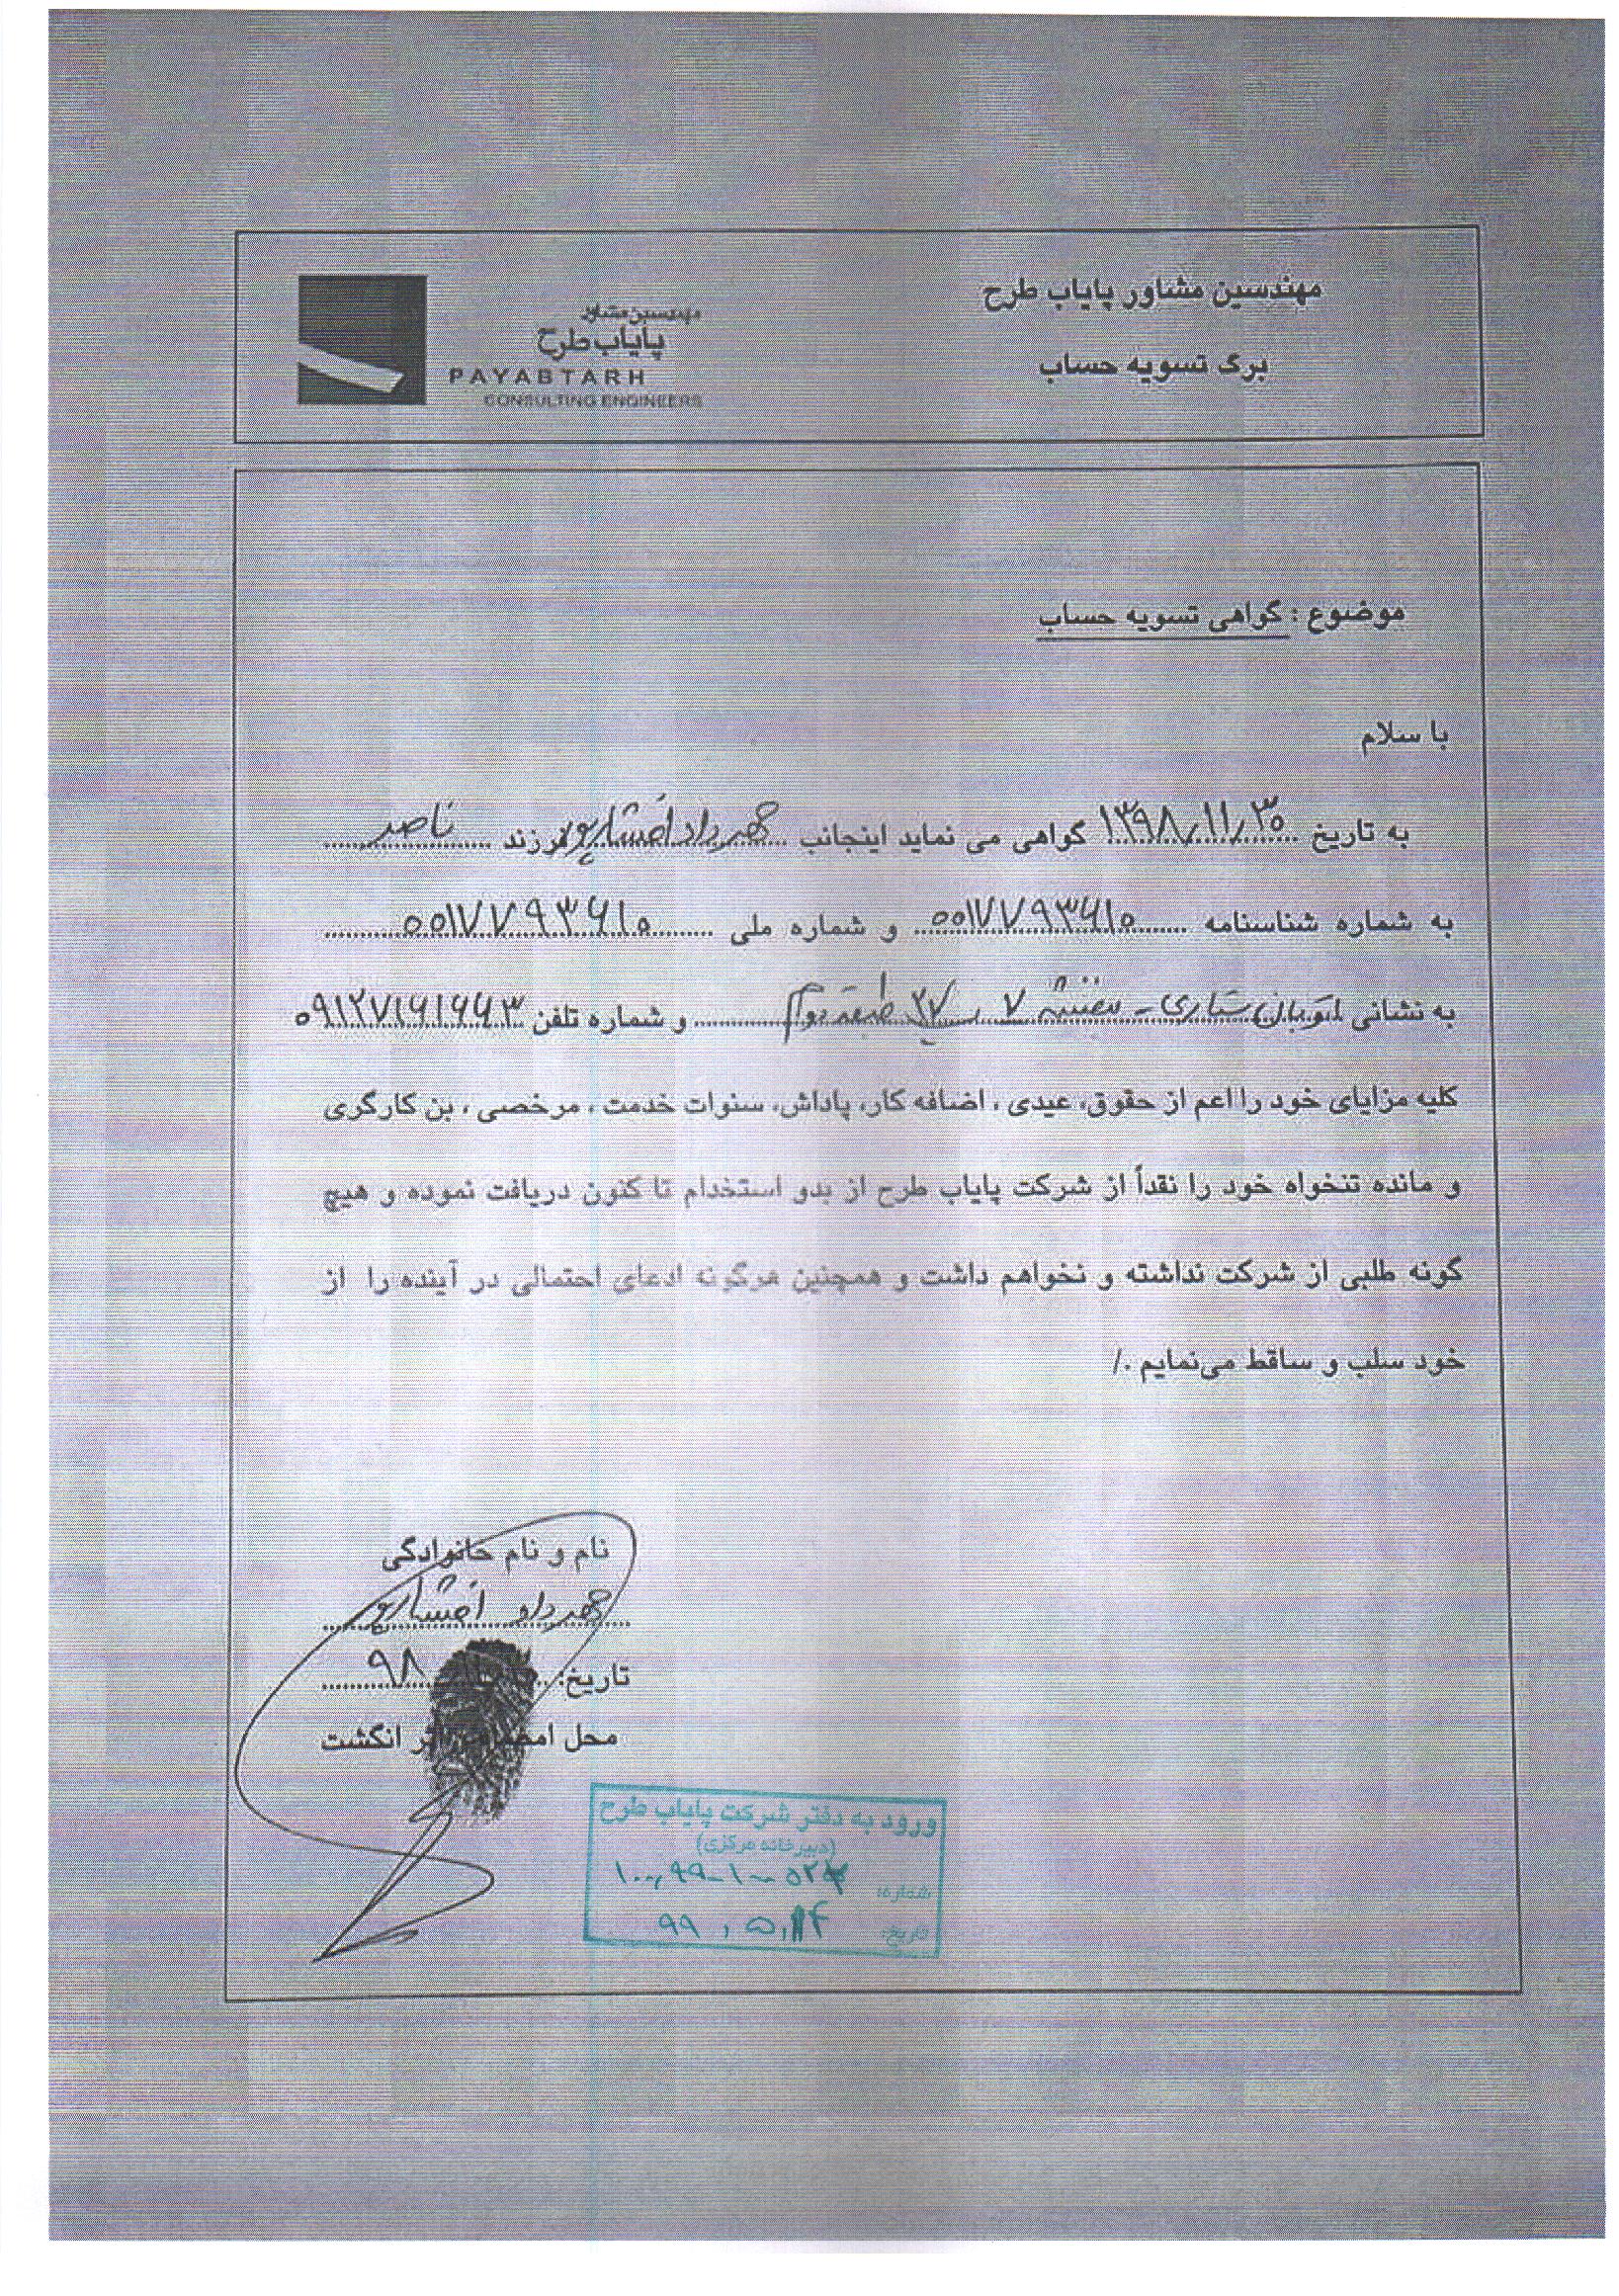 مهندسین مشاور پایاب طرح
برگ تسویه حساب
مهندسین مشاور
پایاب طرح
PAYABTARH
CONSULTING ENGINEERS
موضوع : گواهی تسویه حساب
با سلام
به تاریخ ۱۳۹۸/۱۱/۳۰ گواهی می نماید اینجانب مهرداد افشارپور فرزند ناصر
به شماره شناسنامه ۰۰۱۷۷۹۳۶۱۰ و شماره ملی ۰۰۱۷۷۹۳۶۱۰
به نشانی اتوبان ستاری - بنفشه ۷ پ ۲۷ طبقه دوم و شماره تلفن ۰۹۱۲۷۱۶۱۶۶۳
کلیه مزایای خود را اعم از حقوق، عیدی ، اضافه کار، پاداش، سنوات خدمت ، مرخصی ، بن کارگری
و مانده تنخواه خود را نقداً از شرکت پایاب طرح از بدو استخدام تا کنون دریافت نموده و هیچ
گونه طلبی از شرکت نداشته و نخواهم داشت و همچنین هرگونه ادعای احتمالی در آینده را از
خود سلب و ساقط می‌نمایم ./
نام و نام خانوادگی
مهرداد افشارپور
تاریخ: ۹۸
محل امضاء اثر انگشت
ورود به دفتر شرکت پایاب طرح
(دبیرخانه مرکزی)
شماره:
تاریخ: ۹۹